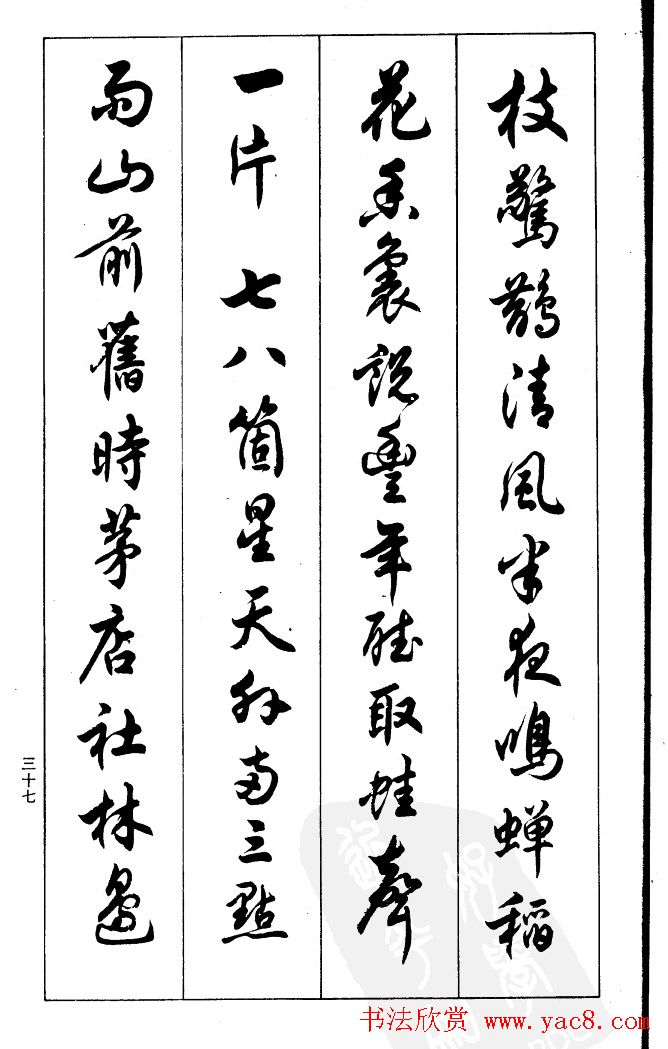 枝驚鵲清風半夜鳴蟬稻
花香裏說豐年聽取蛙聲
一片 七八箇星天外两三點
雨山前舊時茅店社林邊
三十七
书法欣赏 www.yac8.com